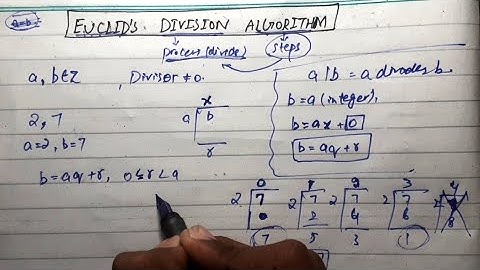 a=b
EUCLID'S DIVISION ALGORITHM
process (divide)
steps
a, b∈Z , Divisor ≠ 0.
2, 7
a=2, b=7
b=aq+r, 0≤r<a
x
a b
r
a|b = a divides b.
b = a (integer).
b = ax+0
b = aq+r
0 1 2 3 4
2 7 2 7 2 7 2 7 2 7
0 2 4 6 8
7 5 3 1